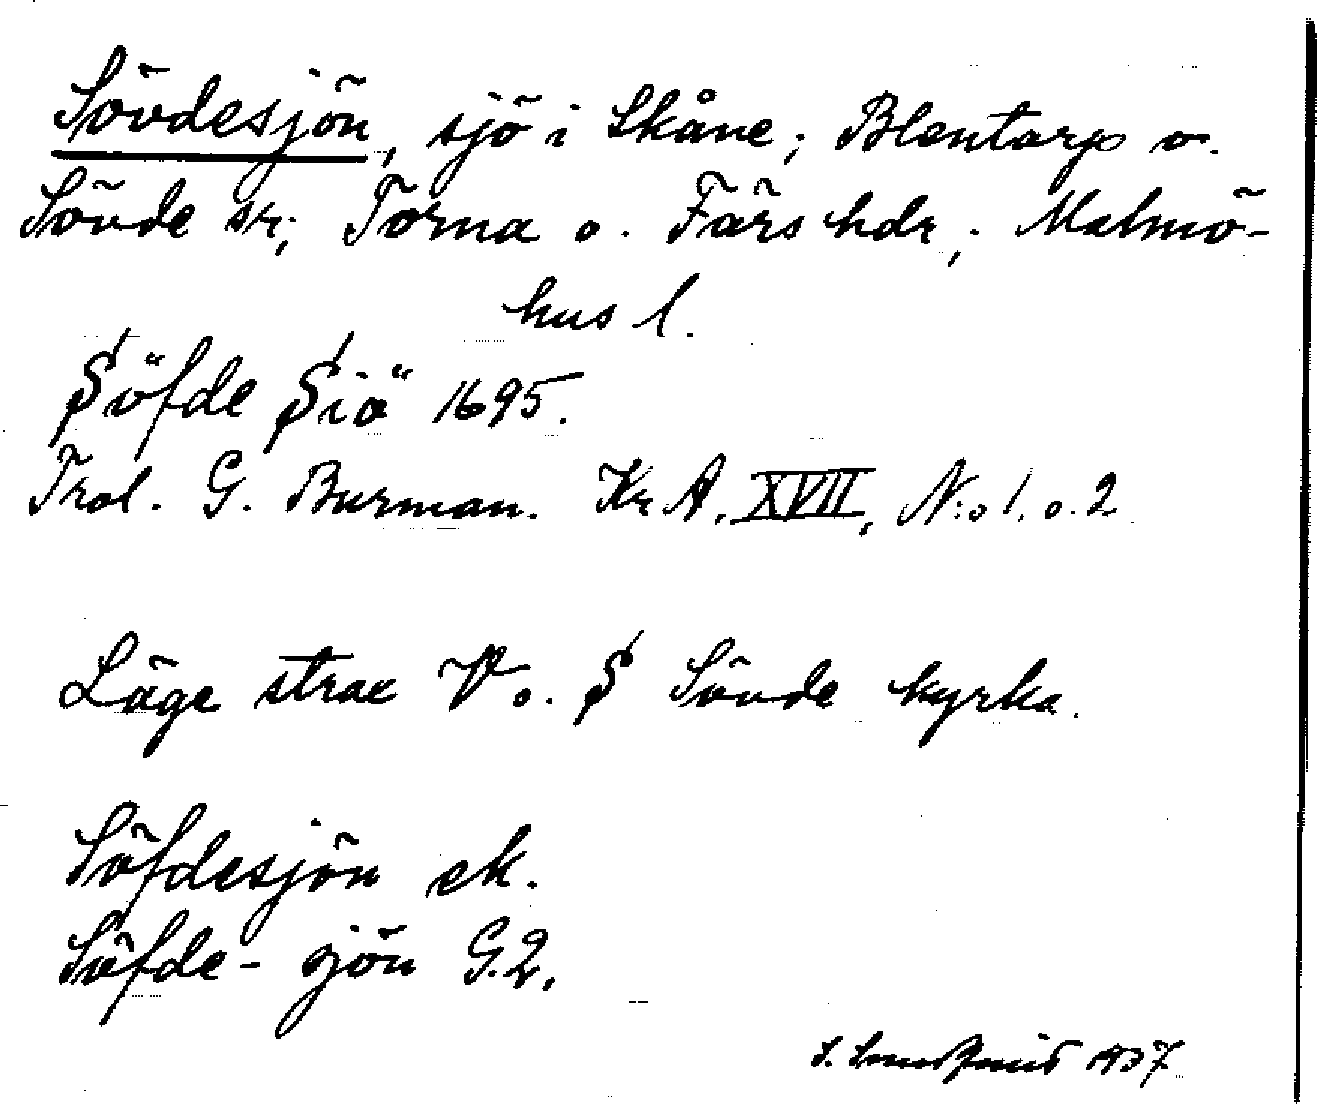 Sövdesjön, sjö i Skåne; Blentarp o.
Sövde sr; Torna o. Färs hdr; Malmö-
hus l.
Söfde Siö 1695.
Trol. G. Burman. Kr A. XVII, N:o 1. o. 2
Läge strax V o. S Sövde kyrka.
Söfdesjön ek.
Söfde- sjön G.2.
1937